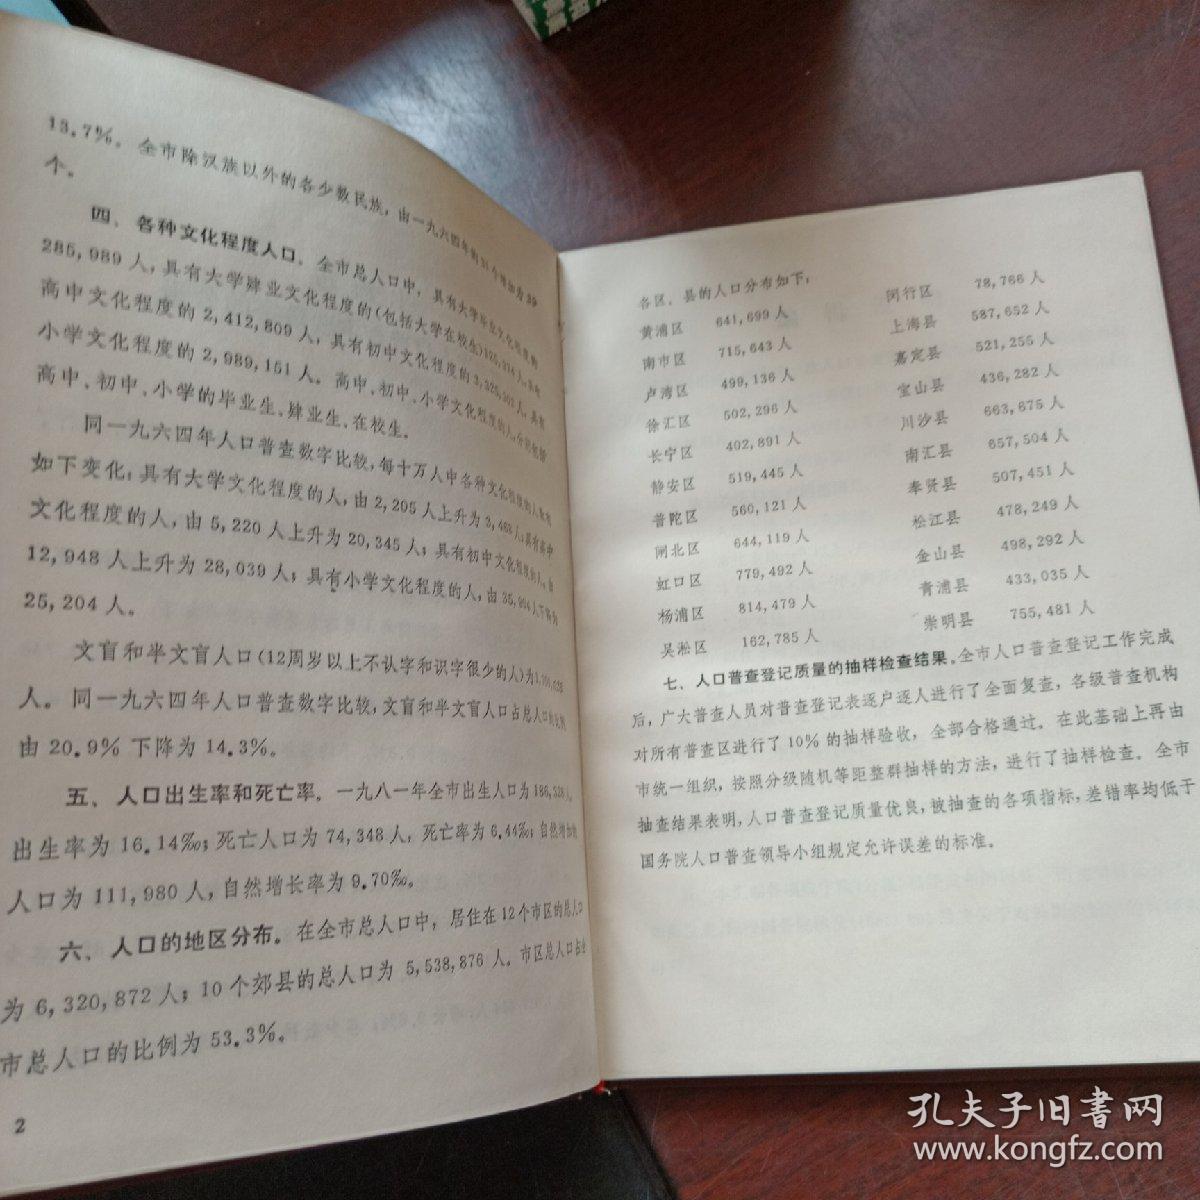 13.7%。全市除汉族以外的各少数民族，由一九六四年的31个增加为39
个。
四、各种文化程度人口。全市总人口中，具有大学毕业文化程度的
285,989人，具有大学肄业文化程度的(包括大学在校生)
高中文化程度的2,412,809人，具有初中文化程度的3,325,
小学文化程度的2,989,151人。高中、初中、小学文化程度的人，分别包括
高中、初中、小学的毕业生、肄业生、在校生。
同一九六四年人口普查数字比较，每十万人中各种文化程度的人数有
如下变化：具有大学文化程度的人，由2,205人上升为3,468人；具有高中
文化程度的人，由5,220人上升为20,345人；具有初中文化程度的人，由
12,948人上升为28,039人；具有小学文化程度的人，由35,904人下降为
25,204人。
文盲和半文盲人口(12周岁以上不认字和识字很少的人)为
人。同一九六四年人口普查数字比较，文盲和半文盲人口占总人口的比例
由20.9%下降为14.3%。
五、人口出生率和死亡率。一九八一年全市出生人口为186,328人，
出生率为16.14‰；死亡人口为74,348人，死亡率为6.44‰；自然增加的
人口为111,980人，自然增长率为9.70‰。
六、人口的地区分布。在全市总人口中，居住在12个市区的总人口
为6,320,872人；10个郊县的总人口为5,538,876人。市区总人口占全
市总人口的比例为53.3%。
2
各区、县的人口分布如下：
黄浦区 641,699人 闵行区 78,766人
南市区 715,643人 上海县 587,652人
卢湾区 499,136人 嘉定县 521,255人
徐汇区 502,296人 宝山县 436,282人
长宁区 402,891人 川沙县 663,675人
静安区 519,445人 南汇县 657,504人
普陀区 560,121人 奉贤县 507,451人
闸北区 644,119人 松江县 478,249人
虹口区 779,492人 金山县 498,292人
杨浦区 814,479人 青浦县 433,035人
吴淞区 162,785人 崇明县 755,481人
七、人口普查登记质量的抽样检查结果。全市人口普查登记工作完成
后，广大普查人员对普查登记表逐户逐人进行了全面复查，各级普查机构
对所有普查区进行了10%的抽样验收，全部合格通过。在此基础上再由
市统一组织，按照分级随机等距整群抽样的方法，进行了抽样检查。全市
抽查结果表明，人口普查登记质量优良，被抽查的各项指标，差错率均低于
国务院人口普查领导小组规定允许误差的标准。
孔夫子旧书网
www.kongfz.com